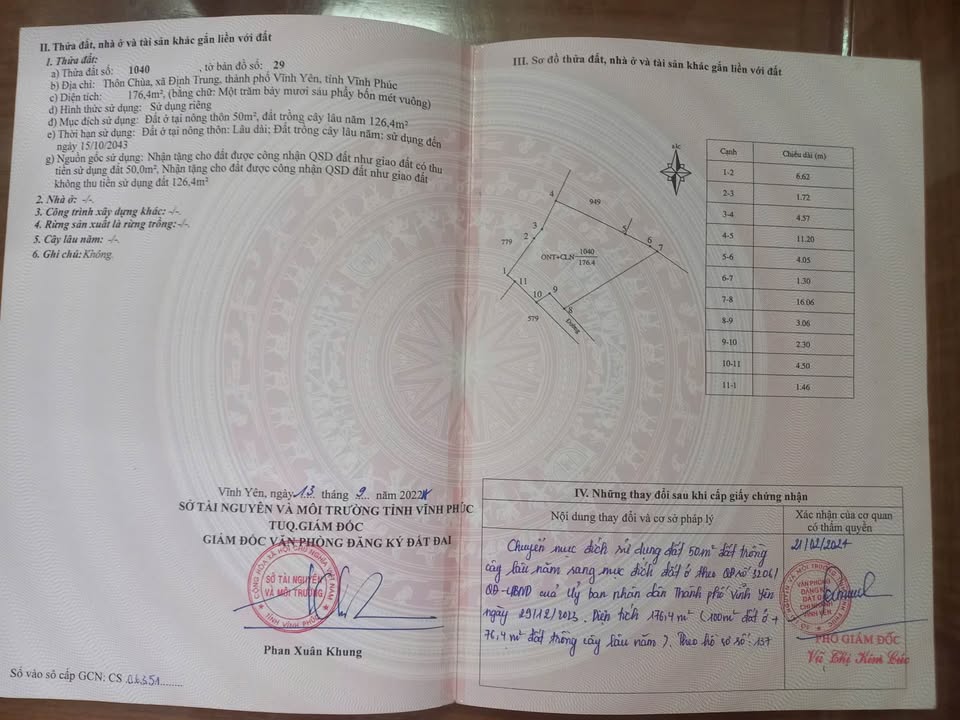 II. Thửa đất, nhà ở và tài sản khác gắn liền với đất
1. Thửa đất:
a) Thửa đất số: 1040 , tờ bản đồ số: 29
b) Địa chỉ: Thôn Chùa, xã Định Trung, thành phố Vĩnh Yên, tỉnh Vĩnh Phúc
c) Diện tích: 176,4m², (bằng chữ: Một trăm bảy mươi sáu phẩy bốn mét vuông)
d) Hình thức sử dụng: Sử dụng riêng
đ) Mục đích sử dụng: Đất ở tại nông thôn 50m², đất trồng cây lâu năm 126,4m²
e) Thời hạn sử dụng: Đất ở tại nông thôn: Lâu dài; Đất trồng cây lâu năm: sử dụng đến
ngày 15/10/2043
g) Nguồn gốc sử dụng: Nhận tặng cho đất được công nhận QSD đất như giao đất có thu
tiền sử dụng đất 50,0m², Nhận tặng cho đất được công nhận QSD đất như giao đất
không thu tiền sử dụng đất 126,4m²
2. Nhà ở: -/-.
3. Công trình xây dựng khác: -/-.
4. Rừng sản xuất là rừng trồng: -/-.
5. Cây lâu năm: -/-.
6. Ghi chú: Không.
Vĩnh Yên, ngày 13 tháng 9 năm 2022
SỞ TÀI NGUYÊN VÀ MÔI TRƯỜNG TỈNH VĨNH PHÚC
TUQ.GIÁM ĐỐC
GIÁM ĐỐC VĂN PHÒNG ĐĂNG KÝ ĐẤT ĐAI
CỘNG HÒA XÃ HỘI CHỦ NGHĨA VIỆT NAM
SỞ TÀI NGUYÊN
VÀ MÔI TRƯỜNG
TỈNH VĨNH PHÚC
Phan Xuân Khung
Số vào sổ cấp GCN: CS 06351
III. Sơ đồ thửa đất, nhà ở và tài sản khác gắn liền với đất
Bắc
4
949
5
6
7
3
2
779
ONT+CLN 1040
176.4
1
11
10
9
8
579
Đường
Cạnh Chiều dài (m)
1-2 6.62
2-3 1.72
3-4 4.57
4-5 11.20
5-6 4.05
6-7 1.30
7-8 16.06
8-9 3.06
9-10 2.30
10-11 4.50
11-1 1.46
IV. Những thay đổi sau khi cấp giấy chứng nhận
Nội dung thay đổi và cơ sở pháp lý
Xác nhận của cơ quan
có thẩm quyền
Chuyển mục đích sử dụng đất 50m² đất trồng
cây lâu năm sang mục đích đất ở theo QĐ số 3206/
QĐ-UBND của Ủy ban nhân dân Thành phố Vĩnh Yên
ngày 29/12/2023. Diện tích 176,4m² (100m² đất ở +
76,4m² đất trồng cây lâu năm). Theo hồ sơ số: 137
21/02/2024
VĂN PHÒNG
PHÓ GIÁM ĐỐC
Vũ Thị Kim Cúc